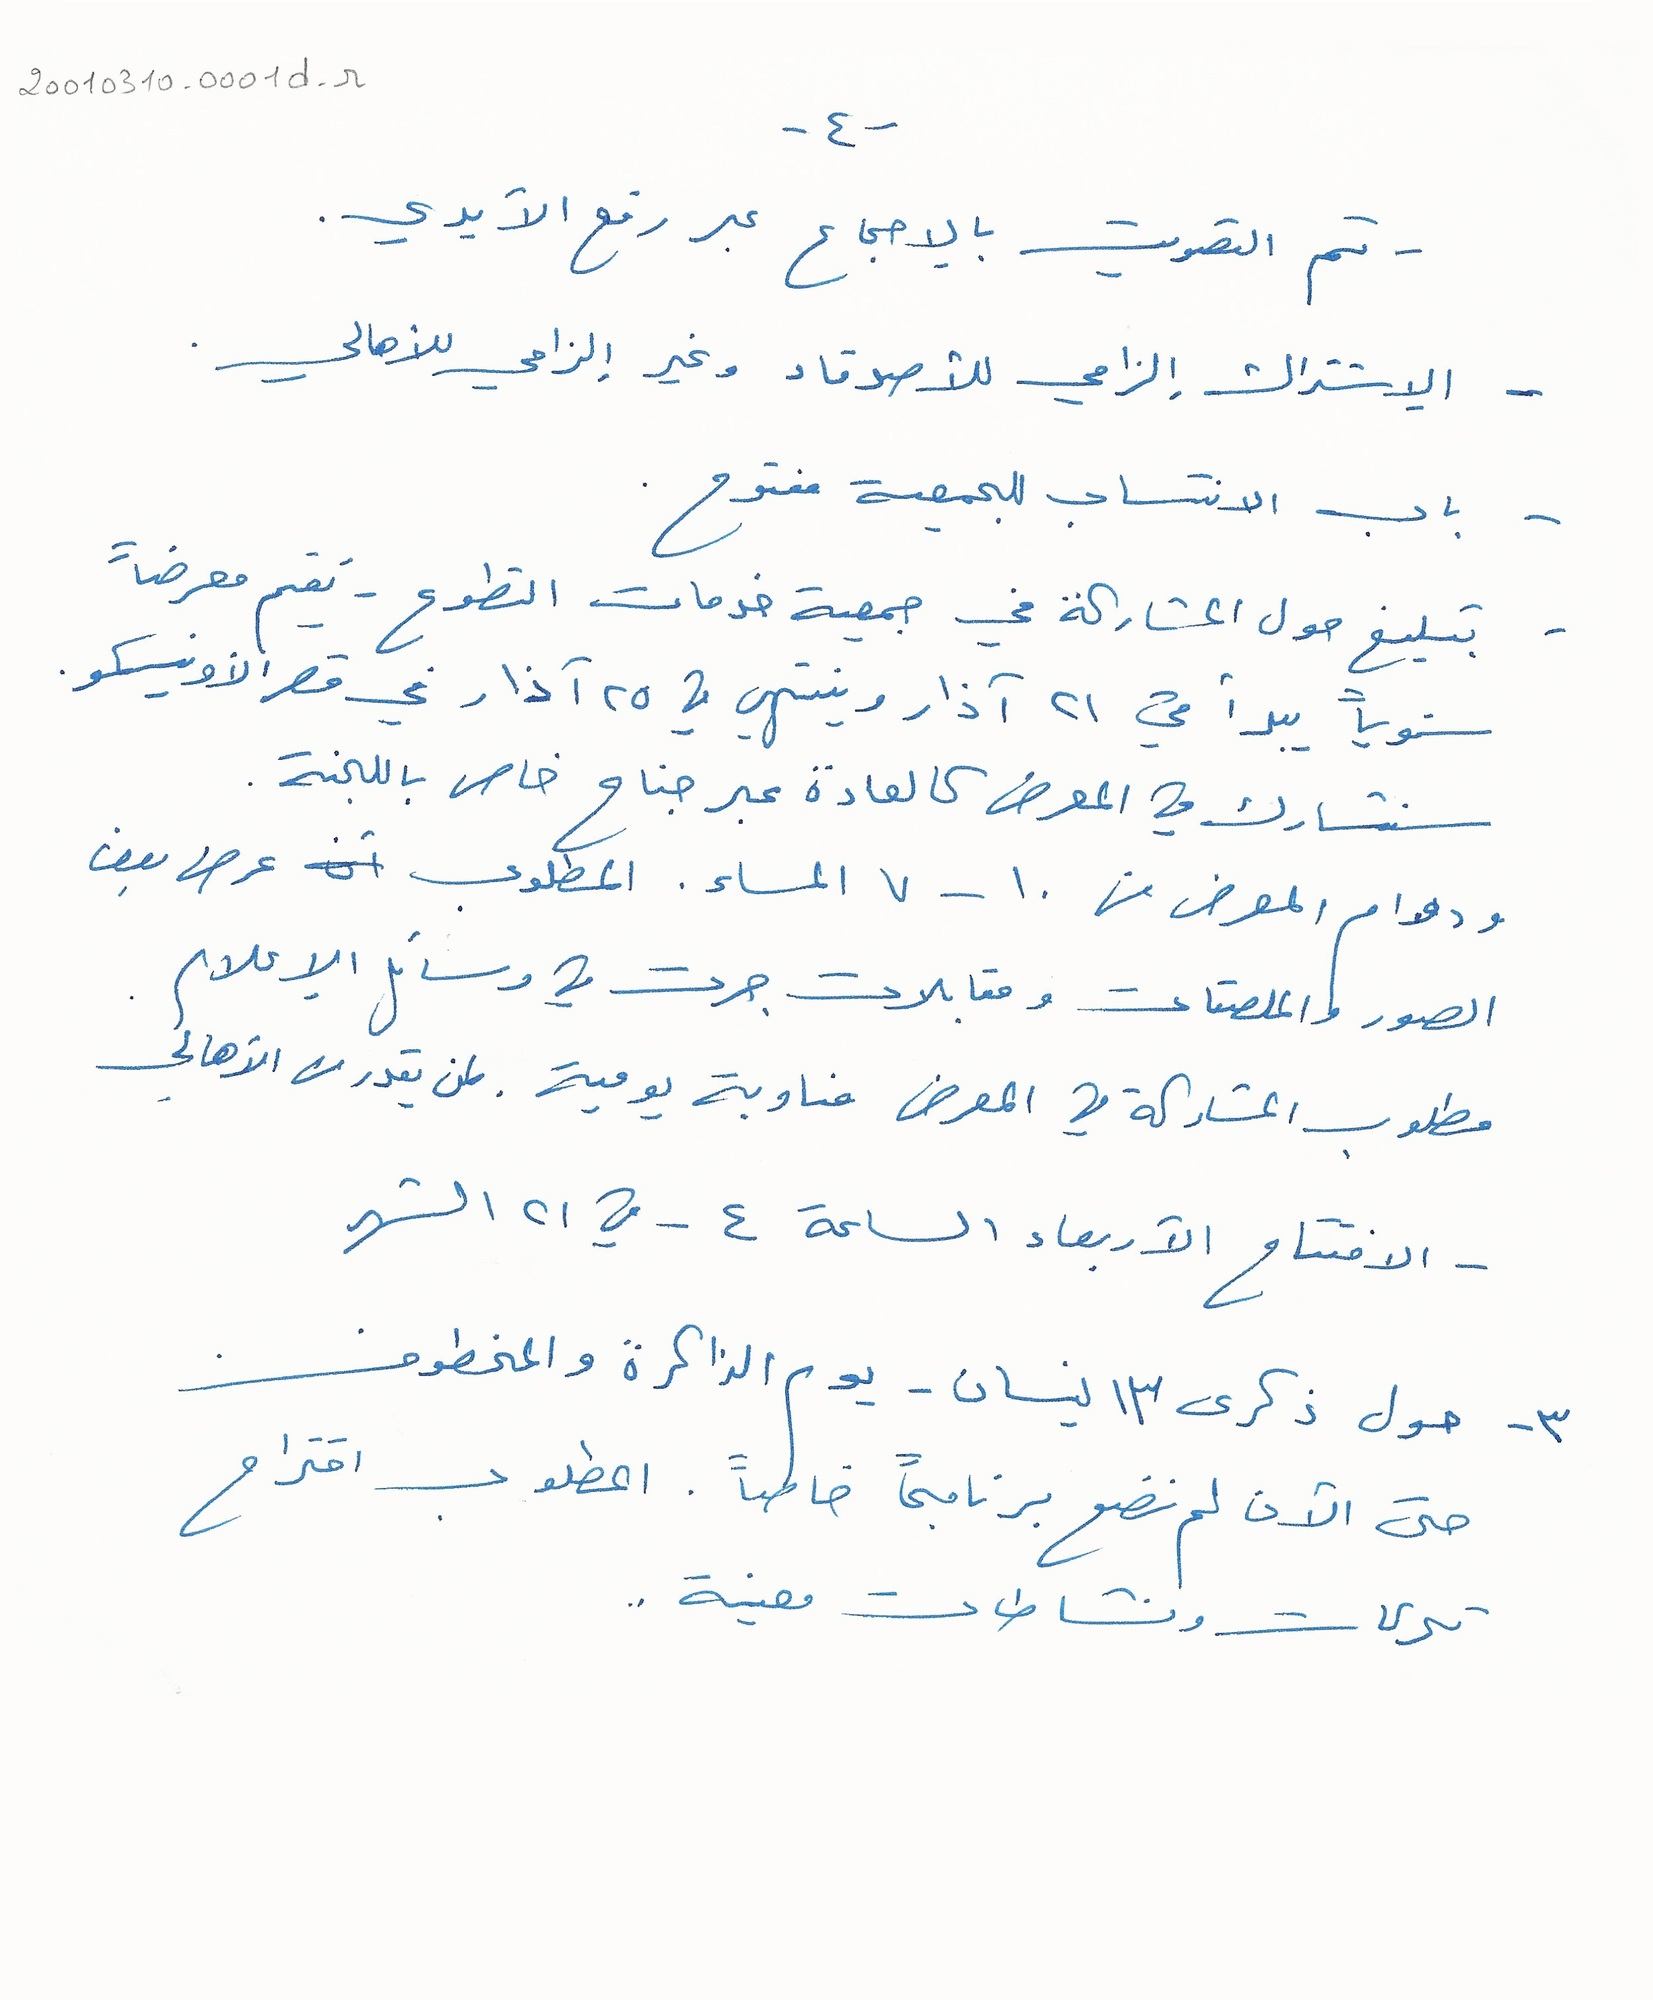 20010310.0001d.r
- ٤ -
- تم التصويت بالاجماع عبر رفع الأيدي.
- الاشتراك إلزامي للأصدقاء وغير إلزامي للأهالي.
- باب الانتساب للجمعية مفتوح.
- تبليغ حول المشاركة في جمعية خدمات التطوع - تقيم معرضاً
سنوياً يبدأ في ٢١ آذار وينتهي في ٢٥ آذار في قصر الأونيسكو.
سنشارك في المعرض كالعادة عبر جناح خاص باللجنة.
ودوام المعرض من ١٠ - ٧ المساء. المطلوب عرض بعض
الصور والملصقات ومقابلات جرت في وسائل الإعلام.
مطلوب المشاركة في المعرض مناوبة يومية. لمن يقدر من الأهالي
- الافتتاح الأربعاء الساعة ٤ - في ٢١ الشهر
٣- حول ذكرى ١٣ نيسان - يوم الذاكرة والمخطوف.
حتى الآن لم نضع برنامجاً خاصاً. المطلوب اقتراح
تحركات ونشاطات معينة ..